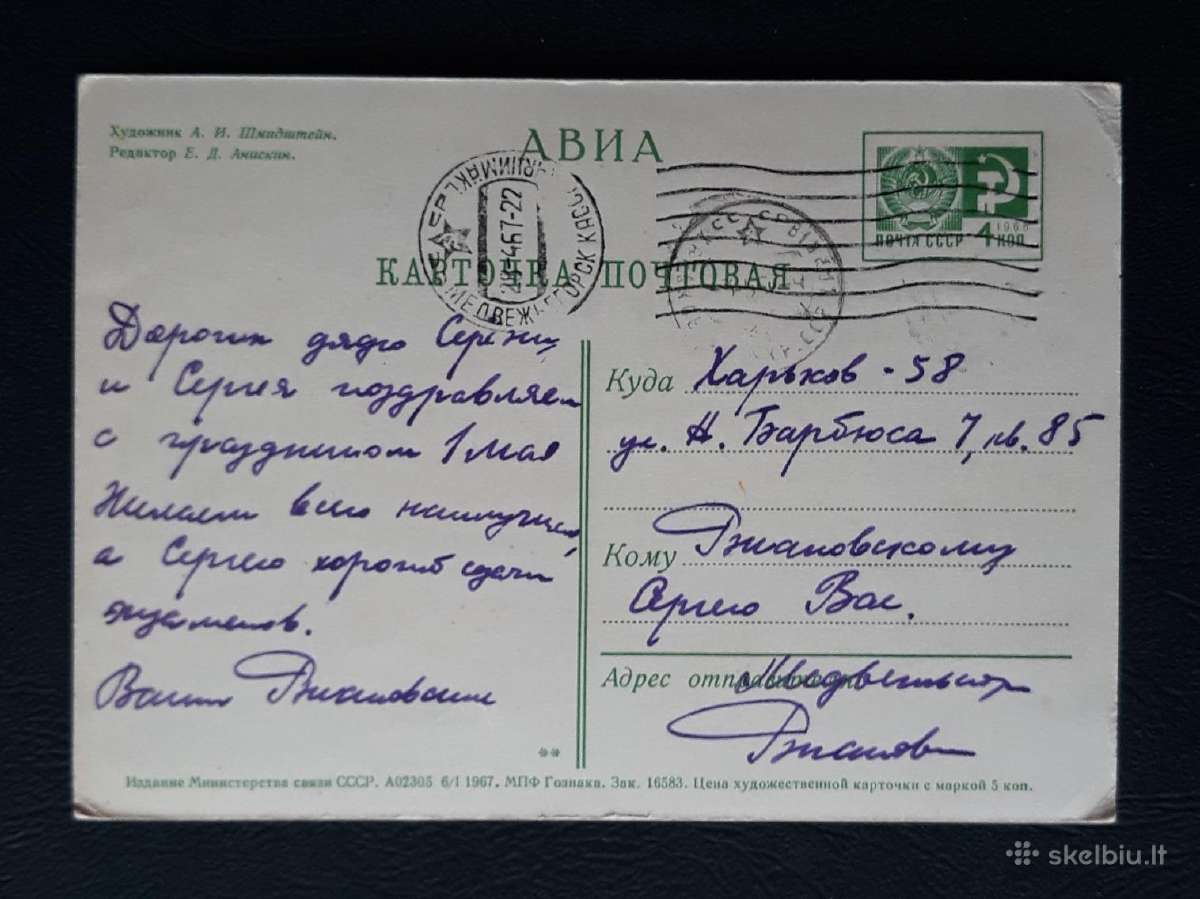 Художник А. И. Шмидштейн.
Редактор Е. Д. Анискин.
АВИА
ПОЧТА СССР 4 КОП
1966
КАРТОЧКА ПОЧТОВАЯ
МЕДВЕЖЬЕГОРСК КАСС
67-22
Дорогих дядю Сережу
и Сергея поздравляем
с праздником 1 мая
Желаем всего наилучшего,
а Сергею хорошей сдачи
экзаменов.
Ваши
Куда Харьков - 58
ул. А. Барбюса 7, кв. 85
Кому
Сергею Вас.
Адрес отправителя Медвежьегорск
**
Издание Министерства связи СССР. А02305 6/I 1967. МПФ Гознака. Зак. 16583. Цена художественной карточки с маркой 5 коп.
skelbiu.lt